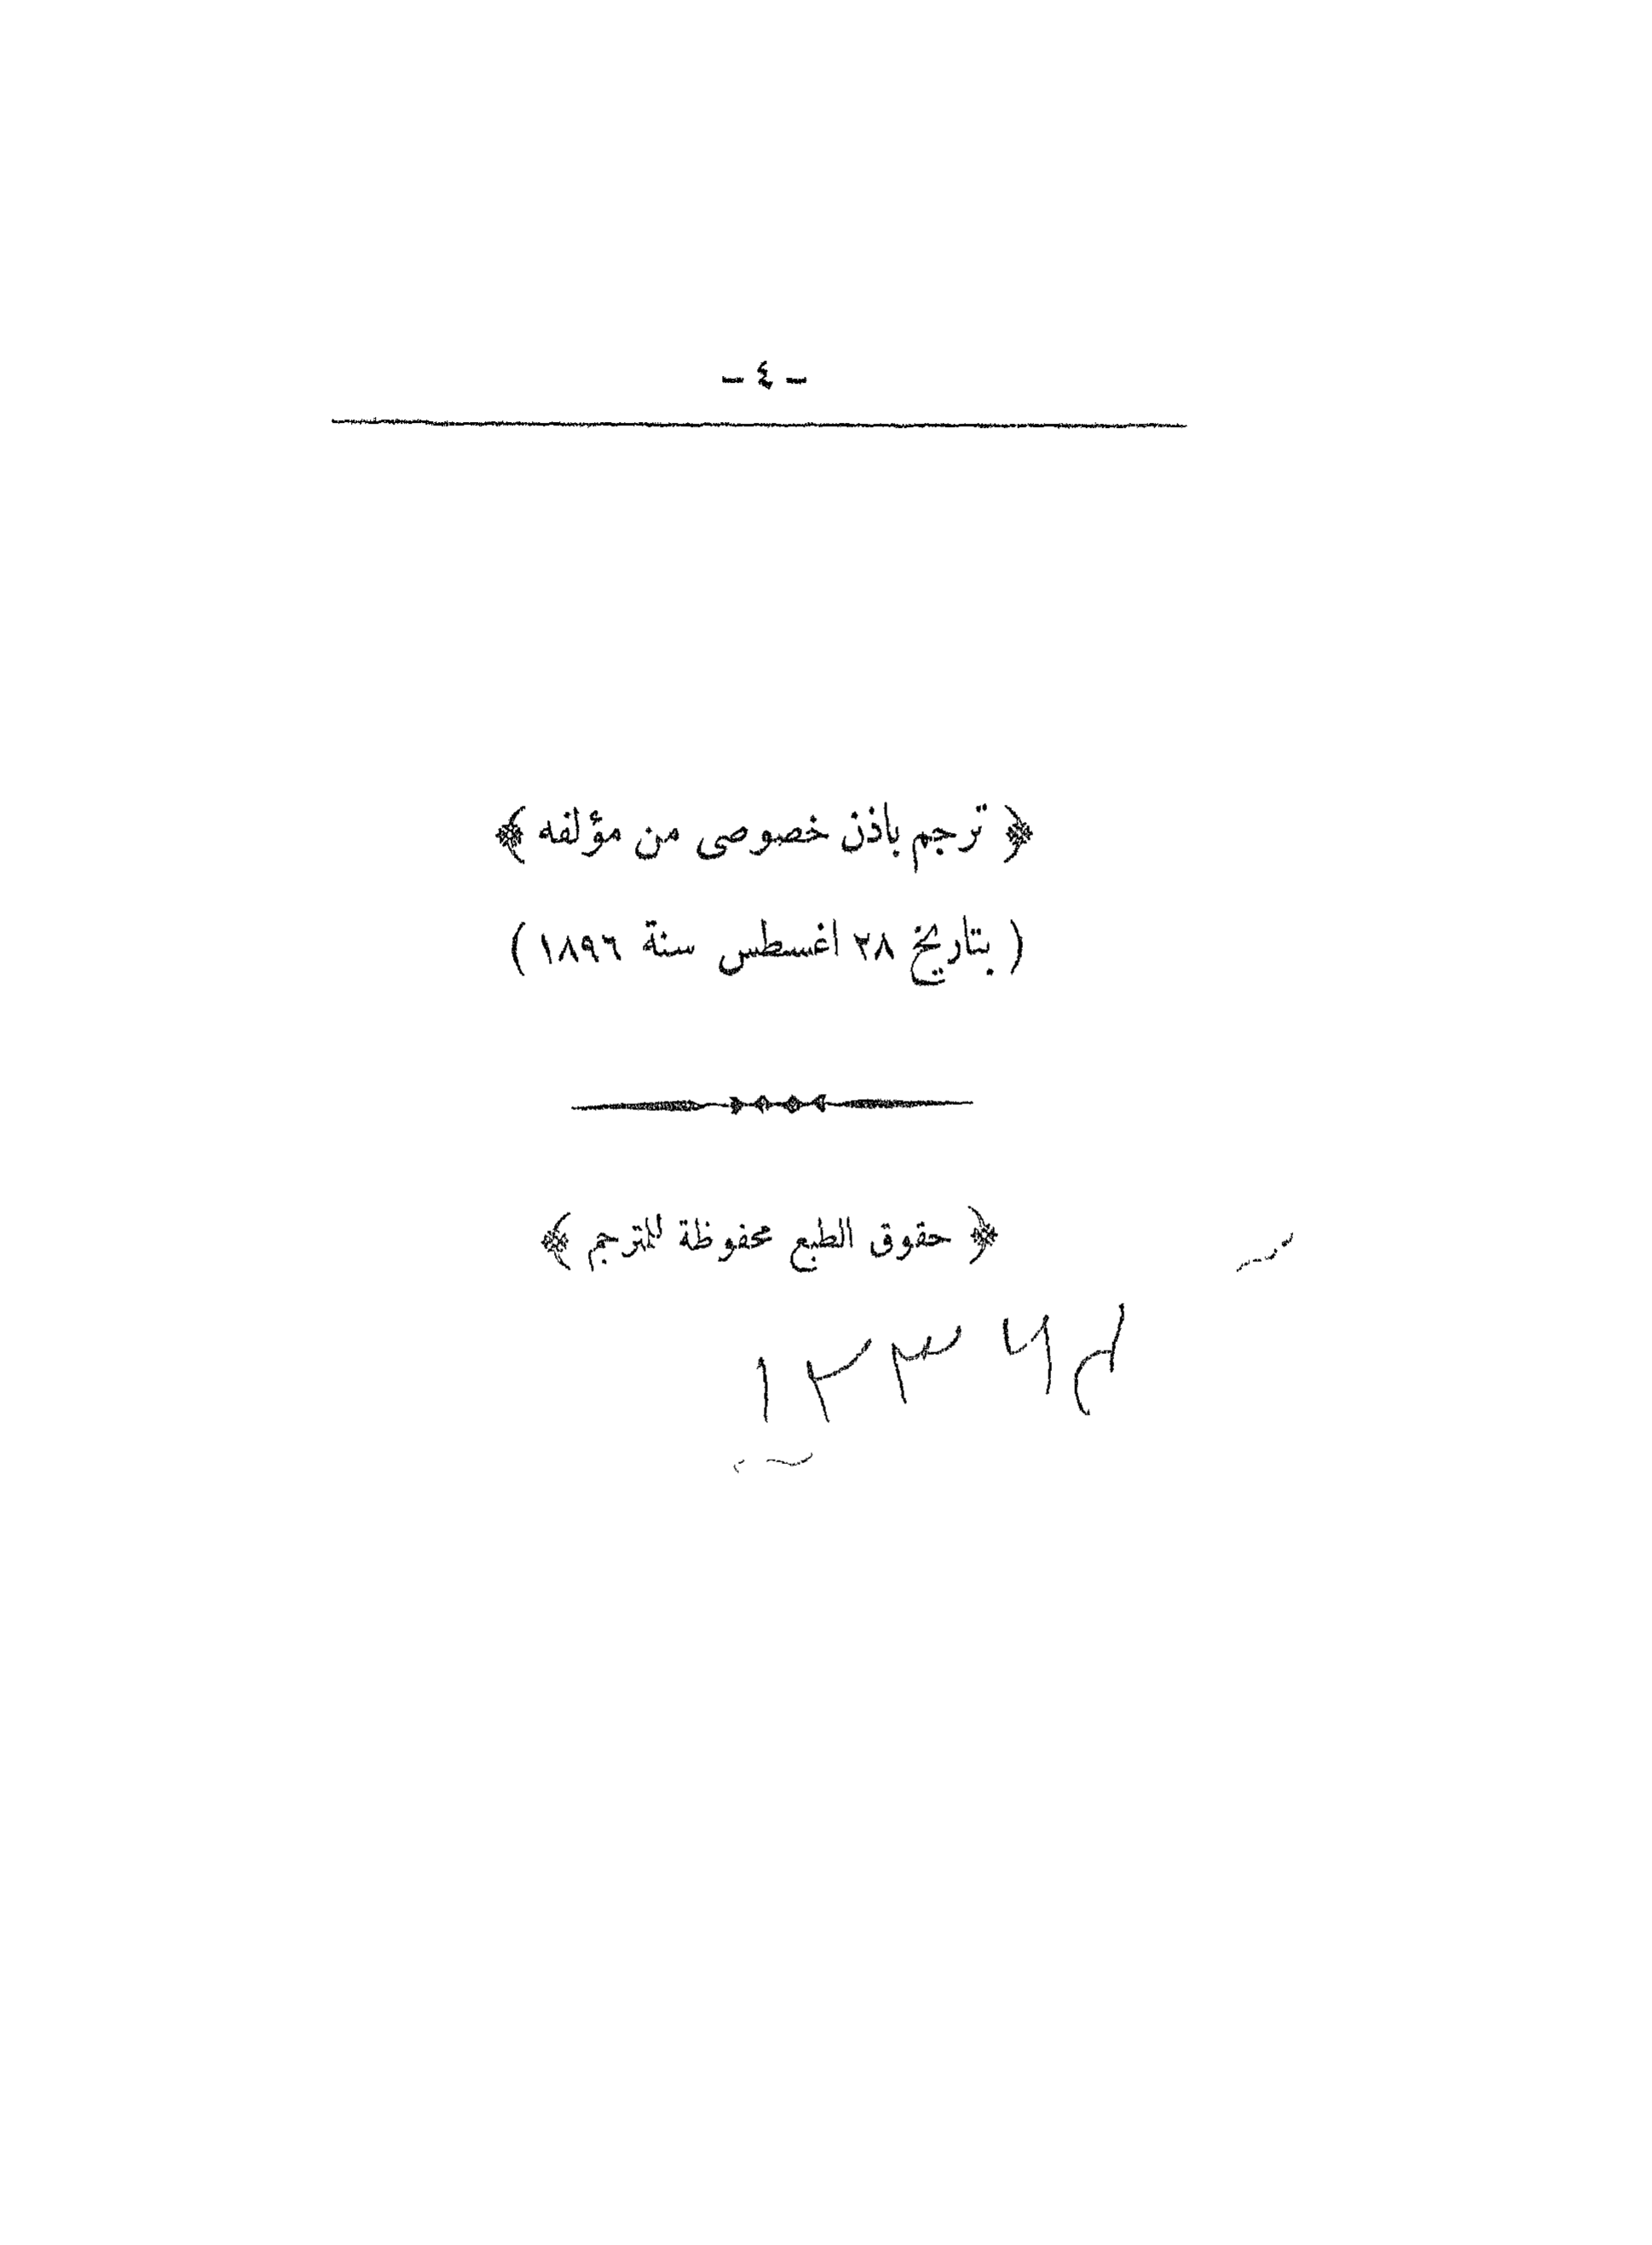 - ٤ -
﴿ ترجم باذن خصوصى من مؤلفه ﴾
( بتاريخ ٢٨ اغسطس سنة ١٨٩٦ )
﴿ حقوق الطبع محفوظة للمترجم ﴾